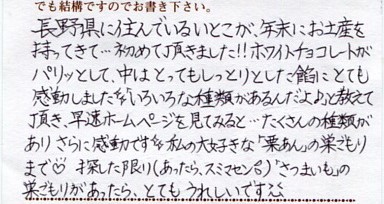 でも結構ですのでお書き下さい。
長野県に住んでいるいとこが、年末にお土産を
持ってきて…初めて頂きました!!ホワイトチョコレートが
パリッとして、中はとってもしっとりとした餡にとても
感動しました〃“いろいろな種類があるんだよ♪”と教えて
頂き、早速ホームページを見てみると…たくさんの種類が
あり さらに感動です〃私の大好きな「栗あん」の巣ごもり
まで♡ 探した限り(あったら、スミマセン)「さつまいも」の
巣ごもりがあったら、とてもうれしいです